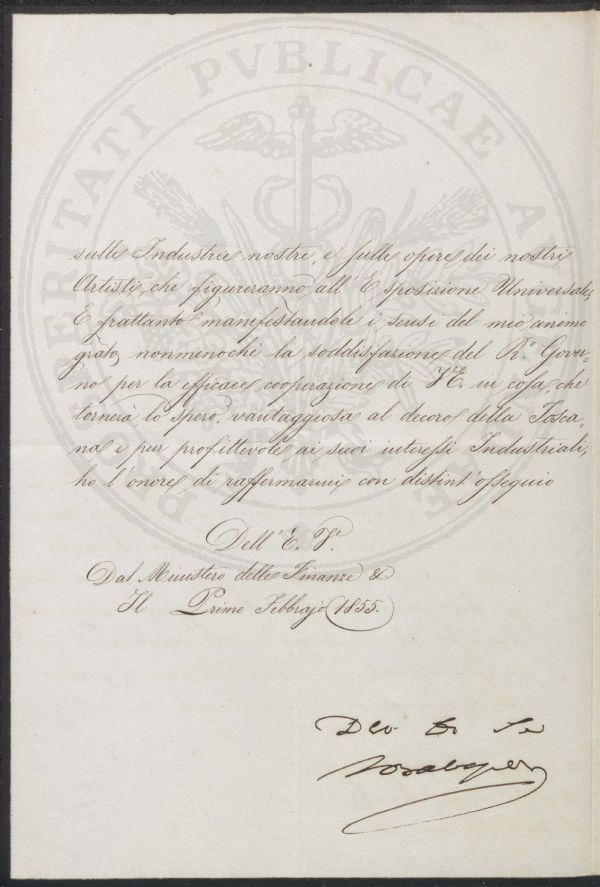 PROSPERITATI PVBLICAE AVGENDAE
sulle Industrie nostre, e sulle opere dei nostri
Artisti, che figureranno all' Esposizione Universale,
E frattanto manifestandole i sensi del mio animo
grato, nonmenochè la soddisfazione del R.º Gover-
no per la efficace cooperazione di V.E. in cosa che
tornerà lo spero, vantaggiosa al decoro della Tosca-
na e pur profittevole ai suoi interessi Industriali,
ho l'onore di raffermarmi con distint' ossequio
Dell' E. V.
Dal Ministero delle Finanze &
Il Primo Febbrajo 1855.
Dev